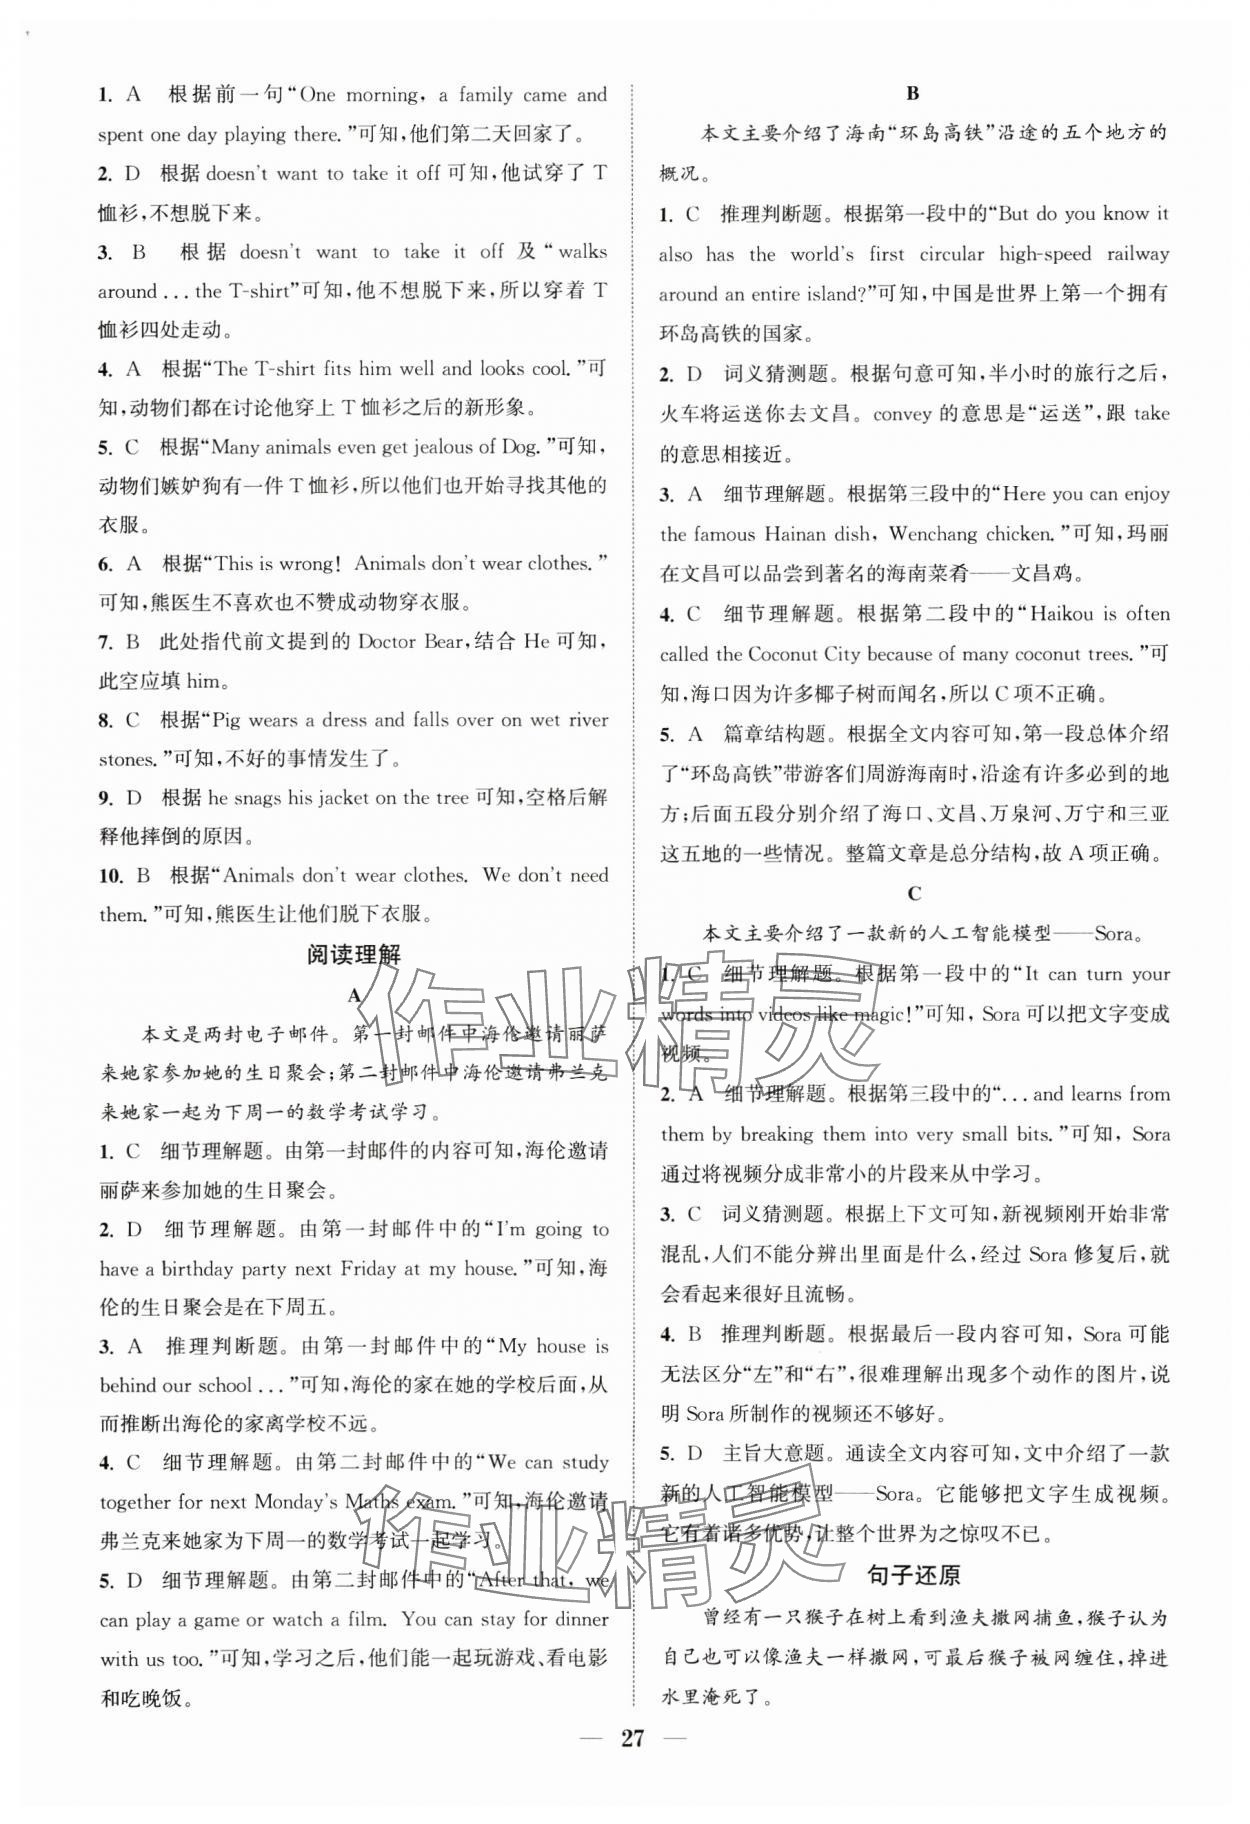 1. A 根据前一句“One morning, a family came and
spent one day playing there. ”可知,他们第二天回家了。
2. D 根据 doesn't want to take it off 可知,他试穿了 T
恤衫,不想脱下来。
3. B 根据 doesn't want to take it off 及“walks
around ... the T-shirt”可知,他不想脱下来,所以穿着 T
恤衫四处走动。
4. A 根据“The T-shirt fits him well and looks cool. ”可
知,动物们都在讨论他穿上 T 恤衫之后的新形象。
5. C 根据“Many animals even get jealous of Dog. ”可知,
动物们嫉妒狗有一件 T 恤衫,所以他们也开始寻找其他的
衣服。
6. A 根据“This is wrong! Animals don't wear clothes. ”
可知,熊医生不喜欢也不赞成动物穿衣服。
7. B 此处指代前文提到的 Doctor Bear,结合 He 可知,
此空应填 him。
8. C 根据“Pig wears a dress and falls over on wet river
stones. ”可知,不好的事情发生了。
9. D 根据 he snags his jacket on the tree 可知,空格后解
释他摔倒的原因。
10. B 根据“Animals don't wear clothes. We don't need
them. ”可知,熊医生让他们脱下衣服。
阅读理解
A
本文是两封电子邮件。第一封邮件中海伦邀请丽萨
来她家参加她的生日聚会;第二封邮件中海伦邀请弗兰克
来她家一起为下周一的数学考试学习。
1. C 细节理解题。由第一封邮件的内容可知,海伦邀请
丽萨来参加她的生日聚会。
2. D 细节理解题。由第一封邮件中的“I'm going to
have a birthday party next Friday at my house. ”可知,海
伦的生日聚会是在下周五。
3. A 推理判断题。由第一封邮件中的“My house is
behind our school ... ”可知,海伦的家在她的学校后面,从
而推断出海伦的家离学校不远。
4. C 细节理解题。由第二封邮件中的“We can study
together for next Monday's Maths exam. ”可知,海伦邀请
弗兰克来她家为下周一的数学考试一起学习。
5. D 细节理解题。由第二封邮件中的“After that, we
can play a game or watch a film. You can stay for dinner
with us too. ”可知,学习之后,他们能一起玩游戏、看电影
和吃晚饭。
B
本文主要介绍了海南“环岛高铁”沿途的五个地方的
概况。
1. C 推理判断题。根据第一段中的“But do you know it
also has the world's first circular high-speed railway
around an entire island?”可知,中国是世界上第一个拥有
环岛高铁的国家。
2. D 词义猜测题。根据句意可知,半小时的旅行之后,
火车将运送你去文昌。convey 的意思是“运送”,跟 take
的意思相接近。
3. A 细节理解题。根据第三段中的“Here you can enjoy
the famous Hainan dish, Wenchang chicken. ”可知,玛丽
在文昌可以品尝到著名的海南菜肴——文昌鸡。
4. C 细节理解题。根据第二段中的“Haikou is often
called the Coconut City because of many coconut trees. ”可
知,海口因为许多椰子树而闻名,所以 C 项不正确。
5. A 篇章结构题。根据全文内容可知,第一段总体介绍
了“环岛高铁”带游客们周游海南时,沿途有许多必到的地
方;后面五段分别介绍了海口、文昌、万泉河、万宁和三亚
这五地的一些情况。整篇文章是总分结构,故 A 项正确。
C
本文主要介绍了一款新的人工智能模型——Sora。
1. C 细节理解题。根据第一段中的“It can turn your
words into videos like magic!”可知, Sora 可以把文字变成
视频。
2. A 细节理解题。根据第三段中的“...and learns from
them by breaking them into very small bits. ”可知, Sora
通过将视频分成非常小的片段来从中学习。
3. C 词义猜测题。根据上下文可知,新视频刚开始非常
混乱,人们不能分辨出里面是什么,经过 Sora 修复后,就
会看起来很好且流畅。
4. B 推理判断题。根据最后一段内容可知, Sora 可能
无法区分“左”和“右”,很难理解出现多个动作的图片,说
明 Sora 所制作的视频还不够好。
5. D 主旨大意题。通读全文内容可知,文中介绍了一款
新的人工智能模型——Sora。它能够把文字生成视频。
它有着诸多优势,让整个世界为之惊叹不已。
句子还原
曾经有一只猴子在树上看到渔夫撒网捕鱼,猴子认为
自己也可以像渔夫一样撒网,可最后猴子被网缠住,掉进
水里淹死了。
— 27 —
作业精灵
作业精灵